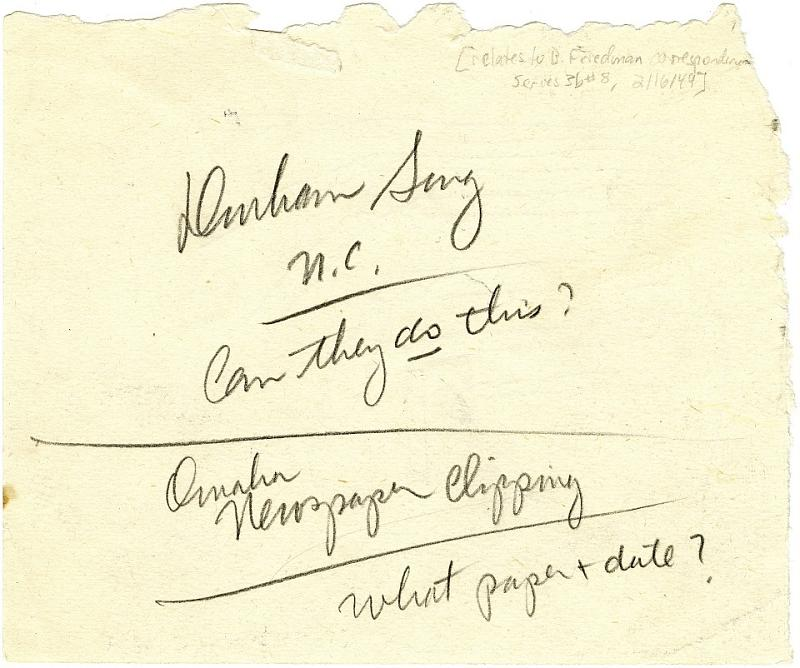 [relates to B. Friedman correspondence
Series 3b #8, 2/16/49]
Durham Sung
N.C.
Can they do this?
Omaha
Newspaper Clipping
What paper + date?